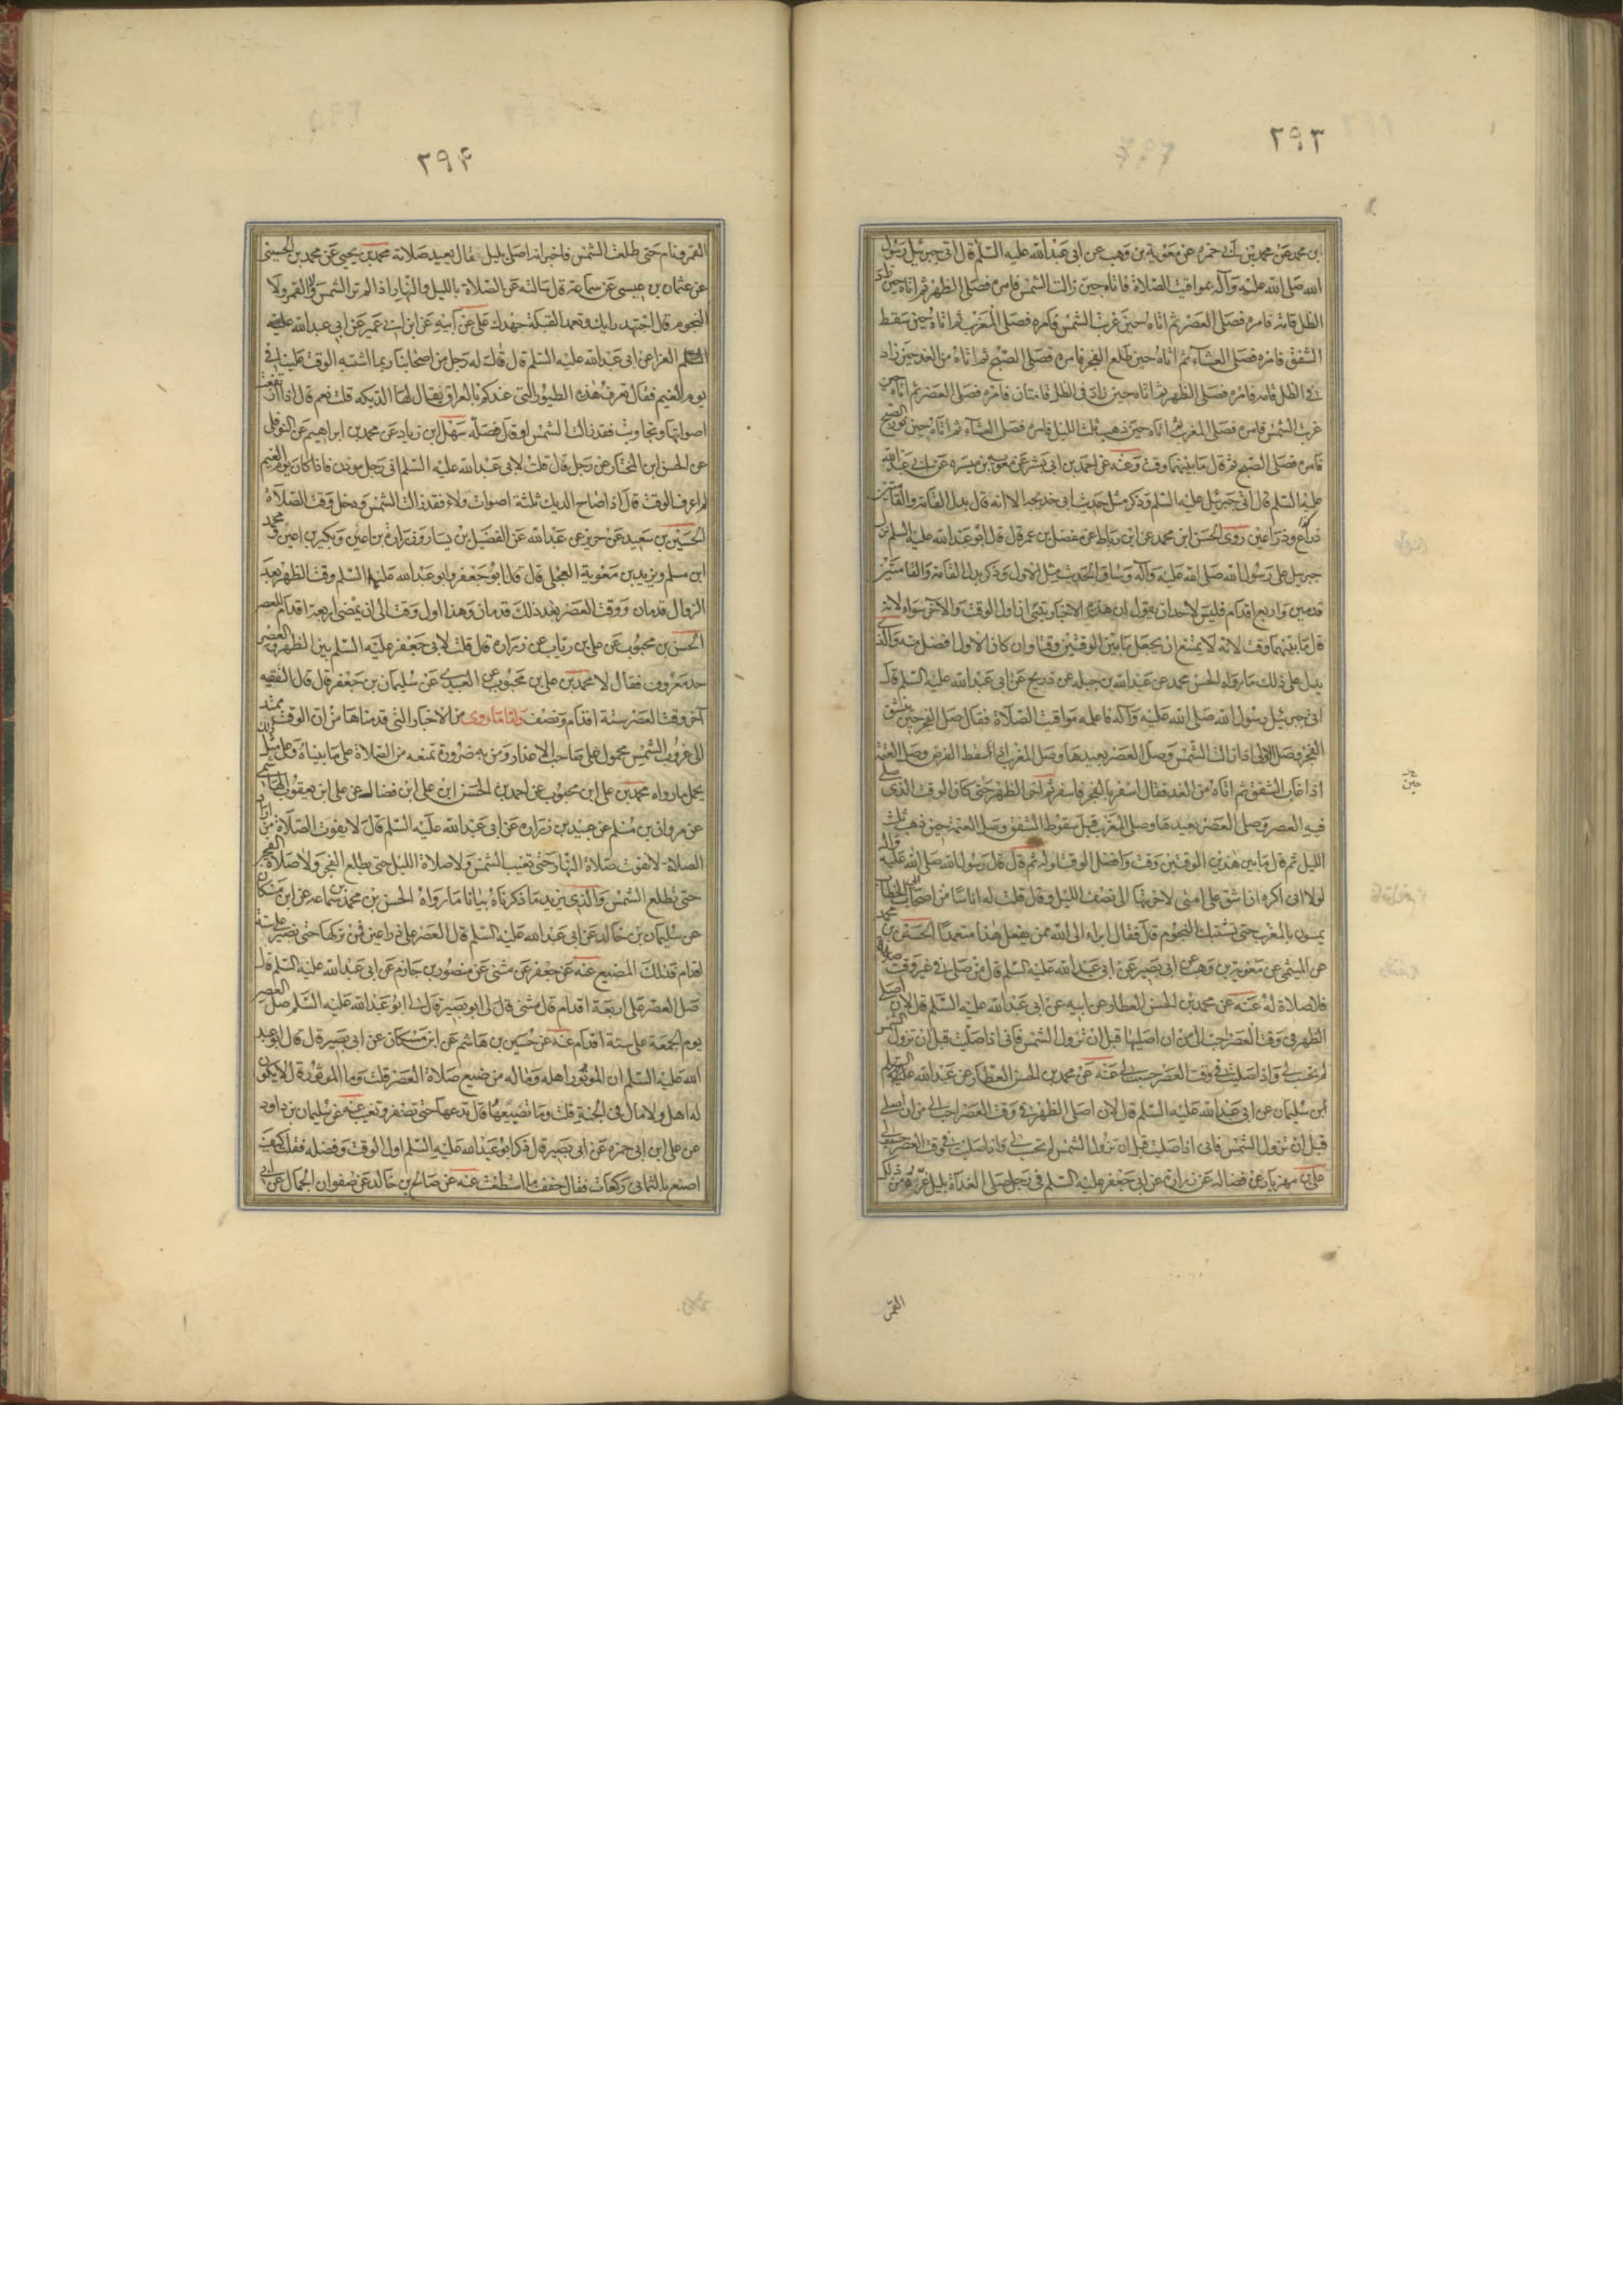 ٢٩٣
بن محمد عن محمد بن أبي حمزه عن معوية بن وهب عن ابى عبد الله عليه السلم قال اتى جبرئيل رسول
الله صلى الله عليه وآله بمواقيت الصلاة فاتاه حين زالت الشمس فامره فصلى الظهر ثم اتاه حين زاد
الظل قامة فامره فصلى العصر ثم اتاه حين غربت الشمس فامره فصلى المغرب ثم اتاه حين سقط
الشفق فامره فصلى العشاء ثم اتاه حين طلع الفجر فامره فصلى الصبح ثم اتاه من الغد حين زاد
في الظل قامه فامره فصلى الظهر ثم اتاه حين زاد فى الظل قامتان فامره فصلى العصر ثم اتاه حين
غربت الشمس فامره فصلى المغرب ثم اتاه حين ذهب ثلث الليل فامره فصلى العشاء ثم اتاه حين نور الصبح
فامره فصلى الصبح ثم قال ما بينهما وقت وعنه عن احمد بن ابى بشر عن معوية بن ميسره عن ابي عبد الله
عليه السلم قال اتى جبرئيل عليه السلم وذكر مثل حديث ابى خديجه الا انه قال بدل القامة والقامتين
ذراع وذراعين روى الحسن ابن محمد عن ابن رباط عن مفضل بن عمر قال قال ابو عبد الله عليه السلم نزل
جبريل على رسول الله صلى الله عليه وآله وساق الحديث مثل الاول وذكر بدل القامة والقامتين
قدمين واربع اقدام فليس لاحد ان يقول ان هذه الاخبار تنبئ ان اول الوقت والآخر سواء لانه
قال ما بينهما وقت لانه لا يمتنع ان يجعل ما بين الوقتين وقتا وان كان الاول افضل منه والذى
يدل على ذلك ما رواه الحسن محمد عن عبد الله بن جبله عن ذريح عن ابى عبد الله عليه السلم قال
اتى جبرئيل رسول الله صلى الله عليه وآله فاعلمه مواقيت الصلاة فقال صل الفجر حين ينشق
الفجر وصل الاولى اذا زالت الشمس وصل العصر بعيدها وصل المغرب اذا سقط القرص وصل العتمة
اذا غاب الشفق ثم اتاه من الغد فقال اسفر بالفجر فاسفر ثم اخر الظهر حتى كان الوقت الذى صلى
فيه العصر وصلى العصر بعيدها وصلى المغرب قبل سقوط الشفق وصلى العتمة حين ذهب ثلث
الليل ثم قال ما بين هذين الوقتين وقت وافضل الوقت اوله ثم قال قال رسول الله صلى الله عليه وآله
لولا انى اكره ان اشق على امتى لاخرتها الى نصف الليل وقال قلت له اناسا من اصحاب ابى الخطاب
يمسون بالمغرب حتى تشتبك النجوم قال فقال ابراء الى الله ممن يفعل هذا متعمدا الحسن بن محمد
عن الميثمى عن معوية بن وهب عن ابى بصير عن ابى عبد الله عليه السلم قال من صلى في غير وقت
فلا صلاة له عنه عن محمد بن الحسن العطار عن ابيه عن ابى عبد الله عليه السلم قال لان اصلي
الظهر فى وقت العصر احب الي من ان اصليها قبل ان تزول الشمس فانى اذا صليت قبل ان تزول الشمس
لم تحسب لي واذا صليت في وقت العصر حسبت لي عنه عن محمد بن الحسن العطار عن عبد الله
ابن سليمان عن ابى عبد الله عليه السلم قال لان اصلى الظهر في وقت العصر احب الي من ان اصلي
قبل ان تزول الشمس فانى اذا صليت قبل ان تزول الشمس لم تحسب لي واذا صليت فى وقت العصر حسبت لي
علي بن مهزيار عن فضاله عن زرارة عن ابى جعفر عليه السلم فى رجل صلى الغداة بليل غره من ذلك
حين
القمر
٢٩۴
القمر ونام حتى طلعت الشمس فاخبر انه اصلى بليل قال يعيد صلاته محمد بن يحيى عن محمد بن الحسين
عن عثمان بن عيسى عن سماعة قال سالته عن الصلاة بالليل والنهار اذا لم تر الشمس ولا القمر ولا
النجوم قال اجتهد رايك وتعمد القبلة جهدك على عن ابيه عن ابن ابي عمير عن ابى عبد الله
الفرا عن ابى عبد الله عليه السلم قال قال له رجل من اصحابنا ربما اشتبه الوقت علينا فى
يوم الغيم فقال تعرف هذه الطيور التى عندكم بالعراق يقال لها الديكه قلت نعم قال اذا ارتفعت
اصواتها وتجاوبت فقد زالت الشمس او قال فصله سهل ابن زياد عن محمد بن ابراهيم عن النوفلى
عن الحسن ابن المختار عن رجل قال قلت لابى عبد الله عليه السلم انى رجل موذن فاذا كان يوم الغيم
لم اعرف الوقت قال اذا صاح الديك ثلثة اصوات ولاء فقد زالت الشمس ودخل وقت الصلاة
الحسين بن سعيد عن حريز عن عبد الله عن الفضيل بن يسار وزرارة بن اعين وبكير بن اعين ومحمد
ابن مسلم ويزيد بن معوية العجلى قال قال ابو جعفر وابو عبد الله عليهما السلم وقت الظهر بعد
الزوال قدمان ووقت العصر بعد ذلك قدمان وهذا اول وقت الى ان يمضى اربعة اقدام للعصر
الحسن بن محبوب عن على بن رياب عن زرارة قال قلت لابى جعفر عليه السلم بين الظهر والعصر
حد معروف فقال لا محمد بن على بن محبوب عن العبيدى عن سليمان بن جعفر قال قال الفقيه
آخر وقت العصر ستة اقدام ونصف واما ما روى من الاخبار التى قدمناها من ان الوقت يمتد
الى غروب الشمس محمول على صاحب الاعذار ومن به ضرورة تمنعه من الصلاة على ما بيناه وعلى مثل
يحمل ما رواه محمد بن على ابن محبوب عن احمد بن الحسن ابن على ابن فضال عن على ابن يعقوب الهاشمى
عن مروان بن مسلم عن عبيد بن زراره عن ابى عبد الله عليه السلم قال لا يفوت الصلاة من اراد
الصلاة لا تفوت صلاة النهار حتى تغيب الشمس ولا صلاة الليل حتى يطلع الفجر ولا صلاة الفجر
حتى تطلع الشمس والذى يزيد ما ذكرناه بيانا ما رواه الحسن بن محمد بن سماعه عن ابن مسكان
عن سليمان بن خالد عن ابى عبد الله عليه السلم قال العصر على ذراعين فمن تركها حتى تصير على ستة
اقدام فذلك المضيع عنه عن جعفر عن مثنى عن منصور بن حازم عن ابى عبد الله عليه السلم قال
صل العصر على اربعة اقدام قال مثنى قال لى ابو بصير قال لي ابو عبد الله عليه السلم صل العصر
يوم الجمعة على ستة اقدام عنه عن حسين بن هاشم عن ابن مسكان عن ابى بصير قال قال ابو عبد
الله عليه السلم ان الموتور اهله وماله من ضيع صلاة العصر قلت وما الموتور قال لا يكون
له اهل ولا مال فى الجنة قلت وما تضييعها قال يدعها حتى تصفر وتغيب عنه عن سليمان بن داود
عن على ابن ابى حمزه عن ابى بصير قال ذكر ابو عبد الله عليه السلم اول الوقت وفضله فقلت كيف
اصنع بالثمانى ركعات فقال خفف ما استطعت عنه عن صالح بن خالد عن صفوان الجمال عن ابى